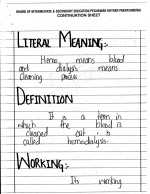 BOARD OF INTERMEDIATE & SECONDARY EDUCATION PESHAWAR KHYBER PAKHTUNKHWA
CONTINUATION SHEET
LITERAL MEANING:-
Hemo means blood
and dialysis means
cleaning process
DEFINITION
It is a term in
which the blood is
cleaned out is
called hemodialysis.
WORKING:-
Its working